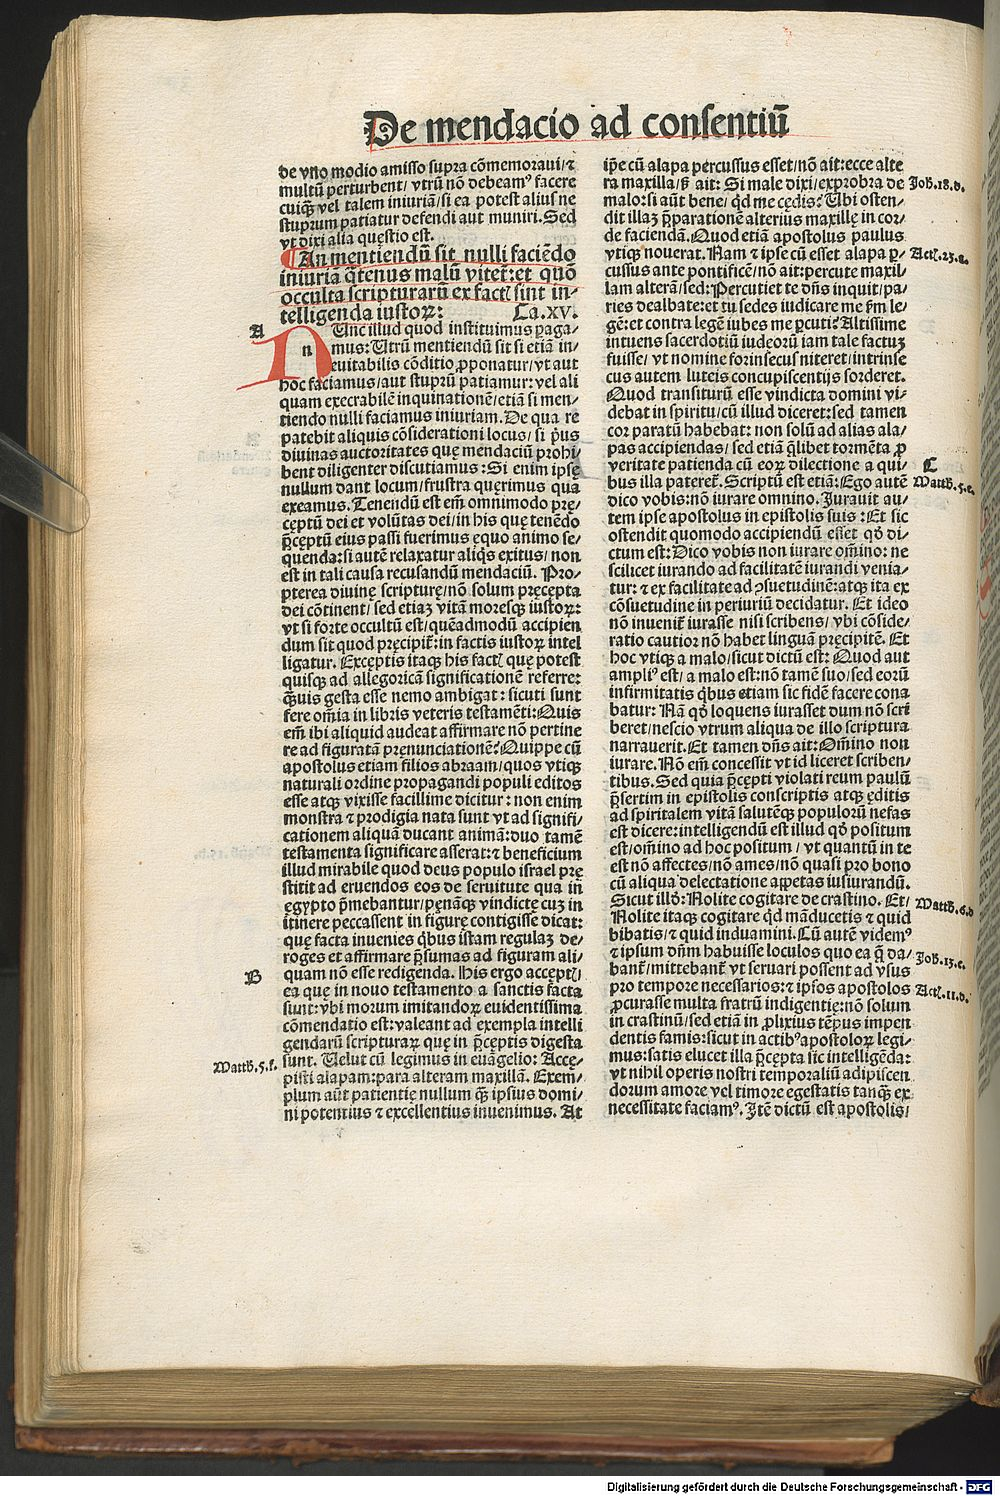 De mendacio ad consentiū
de vno modio amisso supra cōmemoraui/⁊
multū perturbent/ vtrū nō debeamꝰ facere
cuiq̄ȝ vel talem iniuriā/si ea potest alius ne
stuprum patiatur defendi aut muniri. Sed
vt dixi alia questio est.
¶ An mentiendū sit nulli faciēdo
iniuriā q̄tenus malū vitet̄: et quō
occulta scripturarū ex factꝭ sint in-
telligenda iustoꝝ: Ca.XV.
A
n
NUnc illud quod instituimus paga/
mus: Utrū mentiendū sit si etiā in/
euitabilis cōditio ꝓponatur/vt aut
hoc faciamus/aut stuprū patiamur: vel ali
quam execrabilē inquinationē/etiā si men/
tiendo nulli faciamus iniuriam. De qua re
patebit aliquis cōsiderationi locus/ si p̄us
diuinas auctoritates quę mendaciū prohi/
bent diligenter discutiamus: Si enim ipsę
nullum dant locum/frustra quęrimus qua
exeamus. Tenendū est em̄ omnimodo prę/
ceptū dei et volūtas dei/in his quę tenēdo
p̄ceptū eius passi fuerimus ęquo animo se/
quenda: si autē relaxatur aliqͥs exitus/ non
est in tali causa recusandū mendaciū. Pro/
pterea diuinę scripturę/nō solum pręcepta
dei cōtinent/ sed etiaȝ vitā moresqȝ iustoꝝ:
vt si forte occultū est/quēadmodū accipien
dum sit quod pręcipit̄: in factis iustoꝝ intel
ligatur. Exceptis itaqȝ his factꝭ quę potest
quisqȝ ad allegoricā significationē referre:
q̄uis gesta esse nemo ambigat: sicuti sunt
fere om̄ia in libris veteris testamēti: Quis
em̄ ibi aliquid audeat affirmare nō pertine
re ad figuratā prenunciationē? Quippe cū
apostolus etiam filios abraam/quos vtiqȝ
naturali ordine propagandi populi editos
esse atqȝ vixisse facillime dicitur: non enim
monstra ⁊ prodigia nata sunt vt ad signifi/
cationem aliquā ducant animā: duo tamē
testamenta significare asserat: ⁊ beneficium
illud mirabile quod deus populo israel prę
stitit ad eruendos eos de seruitute qua in
egypto p̄mebantur/pęnāqȝ vindictę cuȝ in
itinere peccassent in figurę contigisse dicat:
quę facta inuenies qͥbus istam regulaȝ de/
roges et affirmare p̄sumas ad figuram ali/
quam nō esse redigenda. His ergo acceptꝭ/
B
ea quę in nouo testamento a sanctis facta
sunt: vbi morum imitandoꝝ euidentissima
cōmendatio est: valeant ad exempla intelli
gendarū scripturaꝝ quę in p̄ceptis digesta
Matth.5.f.
sunt. Uelut cū legimus in euāgelio: Acce/
pisti alapam: para alteram maxillā. Exem/
plum aūt patientię nullum q̄ȝ ipsius domi/
ni potentius ⁊ excellentius inuenimus. At
ip̄e cū alapa percussus esset/nō ait: ecce alte
ra maxilla/sȝ ait: Si male dixi/exprobra de
Joh.18.d.
malo: si aūt bene/ qͥd me cędis? Ubi osten/
dit illaȝ p̄parationē alterius maxillę in cor/
de faciendā. Quod etiā apostolus paulus
vtiqȝ nouerat. Nam ⁊ ipse cū esset alapa ꝑ/
Actꝭ.23.a.
cussus ante pontificē/ nō ait: percute maxil/
lam alterā/sed: Percutiet te dn̄s inquit/pa/
ries dealbate: et tu sedes iudicare me ẜm le/
gē: et contra legē iubes me ꝑcuti? Altissime
intuens sacerdotiū iudeorū iam tale factuȝ
fuisse/ vt nomine forinsecus niteret/intrinse
cus autem luteis concupiscentijs sorderet.
Quod transiturū esse vindicta domini vi/
debat in spiritu/cū illud diceret: sed tamen
cor paratū habebat: non solū ad alias ala/
pas accipiendas/ sed etiā q̄libet tormēta ꝓ
veritate patienda cū eoꝝ dilectione a qui/
C
bus illa pateret̄. Scriptū est etiā: Ego autē
Matth.5.e.
dico vobis: nō iurare omnino. Jurauit au/
tem ipse apostolus in epistolis suis: Et sic
ostendit quomodo accipiendū esset qd̄ di/
ctum est: Dico vobis non iurare om̄ino: ne
scilicet iurando ad facilitatē iurandi venia/
tur: ⁊ ex facilitate ad ꝯsuetudinē: atqȝ ita ex
cōsuetudine in periuriū decidatur. Et ideo
nō inuenit̄ iurasse nisi scribens/ vbi cōside/
ratio cautior nō habet linguā pręcipitē. Et
hoc vtiqȝ a malo/sicut dictū est: Quod aut
ampliꝰ est/ a malo est: nō tamē suo/sed eorū
infirmitatis qͥbus etiam sic fidē facere cona
batur: Nā qd̄ loquens iurasset dum nō scri
beret/nescio vtrum aliqua de illo scriptura
narrauerit. Et tamen dn̄s ait: Om̄ino non
iurare. Nō em̄ concessit vt id liceret scriben/
tibus. Sed quia p̄cepti violati reum paulū
p̄sertim in epistolis conscriptis atqȝ ęditis
ad spiritalem vitā salutēqȝ populorū nefas
est dicere: intelligendū est illud qd̄ positum
est/om̄ino ad hoc positum/ vt quantū in te
est nō affectes/nō ames/nō quasi pro bono
cū aliqua delectatione appetas iusiurandū.
Sicut illd̄: Nolite cogitare de crastino. Et/
Matth.6.d
Nolite itaqȝ cogitare qͥd māducetis ⁊ quid
bibatis/⁊ quid induamini. Cū autē videmꝰ
⁊ ipsum dn̄m habuisse loculos quo ea q̄ da/
Joh.13.c.
bant̄/mittebant̄ vt seruari possent ad vsus
pro tempore necessarios: ⁊ ipsos apostolos
Actꝭ.11.d.
ꝓcurasse multa fratrū indigentię: nō solum
in crastinū/sed etiā in ꝓlixius tēpus impen
dentis famis: sicut in actibꝰ apostoloꝝ legi/
mus: satis elucet illa p̄cepta sic intelligēda:
vt nihil operis nostri temporaliū adipiscen
dorum amore vel timore egestatis tanq̄ȝ ex
necessitate faciamꝰ. Itē dictū est apostolis/
Digitalisierung gefördert durch die Deutsche Forschungsgemeinschaft - DFG